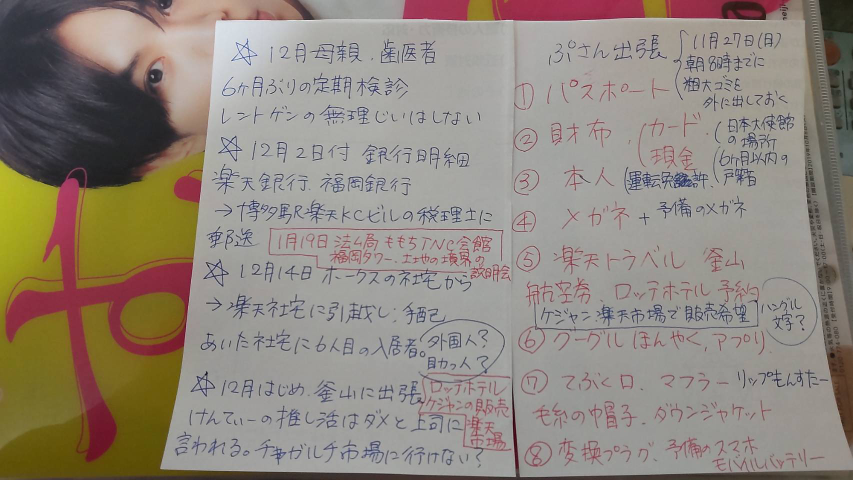 ☆ 12月母親、歯医者
6ヶ月ぶりの定期検診
レントゲンの無理じいはしない
☆ 12月2日付 銀行明細
楽天銀行、福岡銀行
→博多駅楽天KCビルの税理士に
郵送
1月19日 法ム局 ももちTNC会館
福岡タワー、土地の境界の
説明会
☆ 12月14日 ホークスの社宅から
→楽天社宅に引越し:手配
あいた社宅に6人目の入居者。
外国人?
助っ人?
☆ 12月はじめ、釜山に出張
ロッテホテル
ケジャンの販売
楽天
市場
けんてぃーの推し活はダメと上司に
言われる。チャガルチ市場に行けない?
ぷさん出張
11月27日(月)
朝8時までに
粗大ゴミを
外に出しておく
① パスポート
② 財布、(カード、
現金
(日本大使館
の場所
③ 本人 (運転免許、
(6ヶ月以内の
戸籍
④ メガネ + 予備のメガネ
⑤ 楽天トラベル 釜山
航空券、ロッテホテル 予約
ケジャン 楽天市場で販売希望
ハングル
文字?
⑥ グーグル ほんやく、アプリ、
⑦ てぶくロ、マフラー リップもんすたー
毛糸の帽子、ダウンジャケット
⑧ 変換プラグ、予備のスマホ
モバイルバッテリー